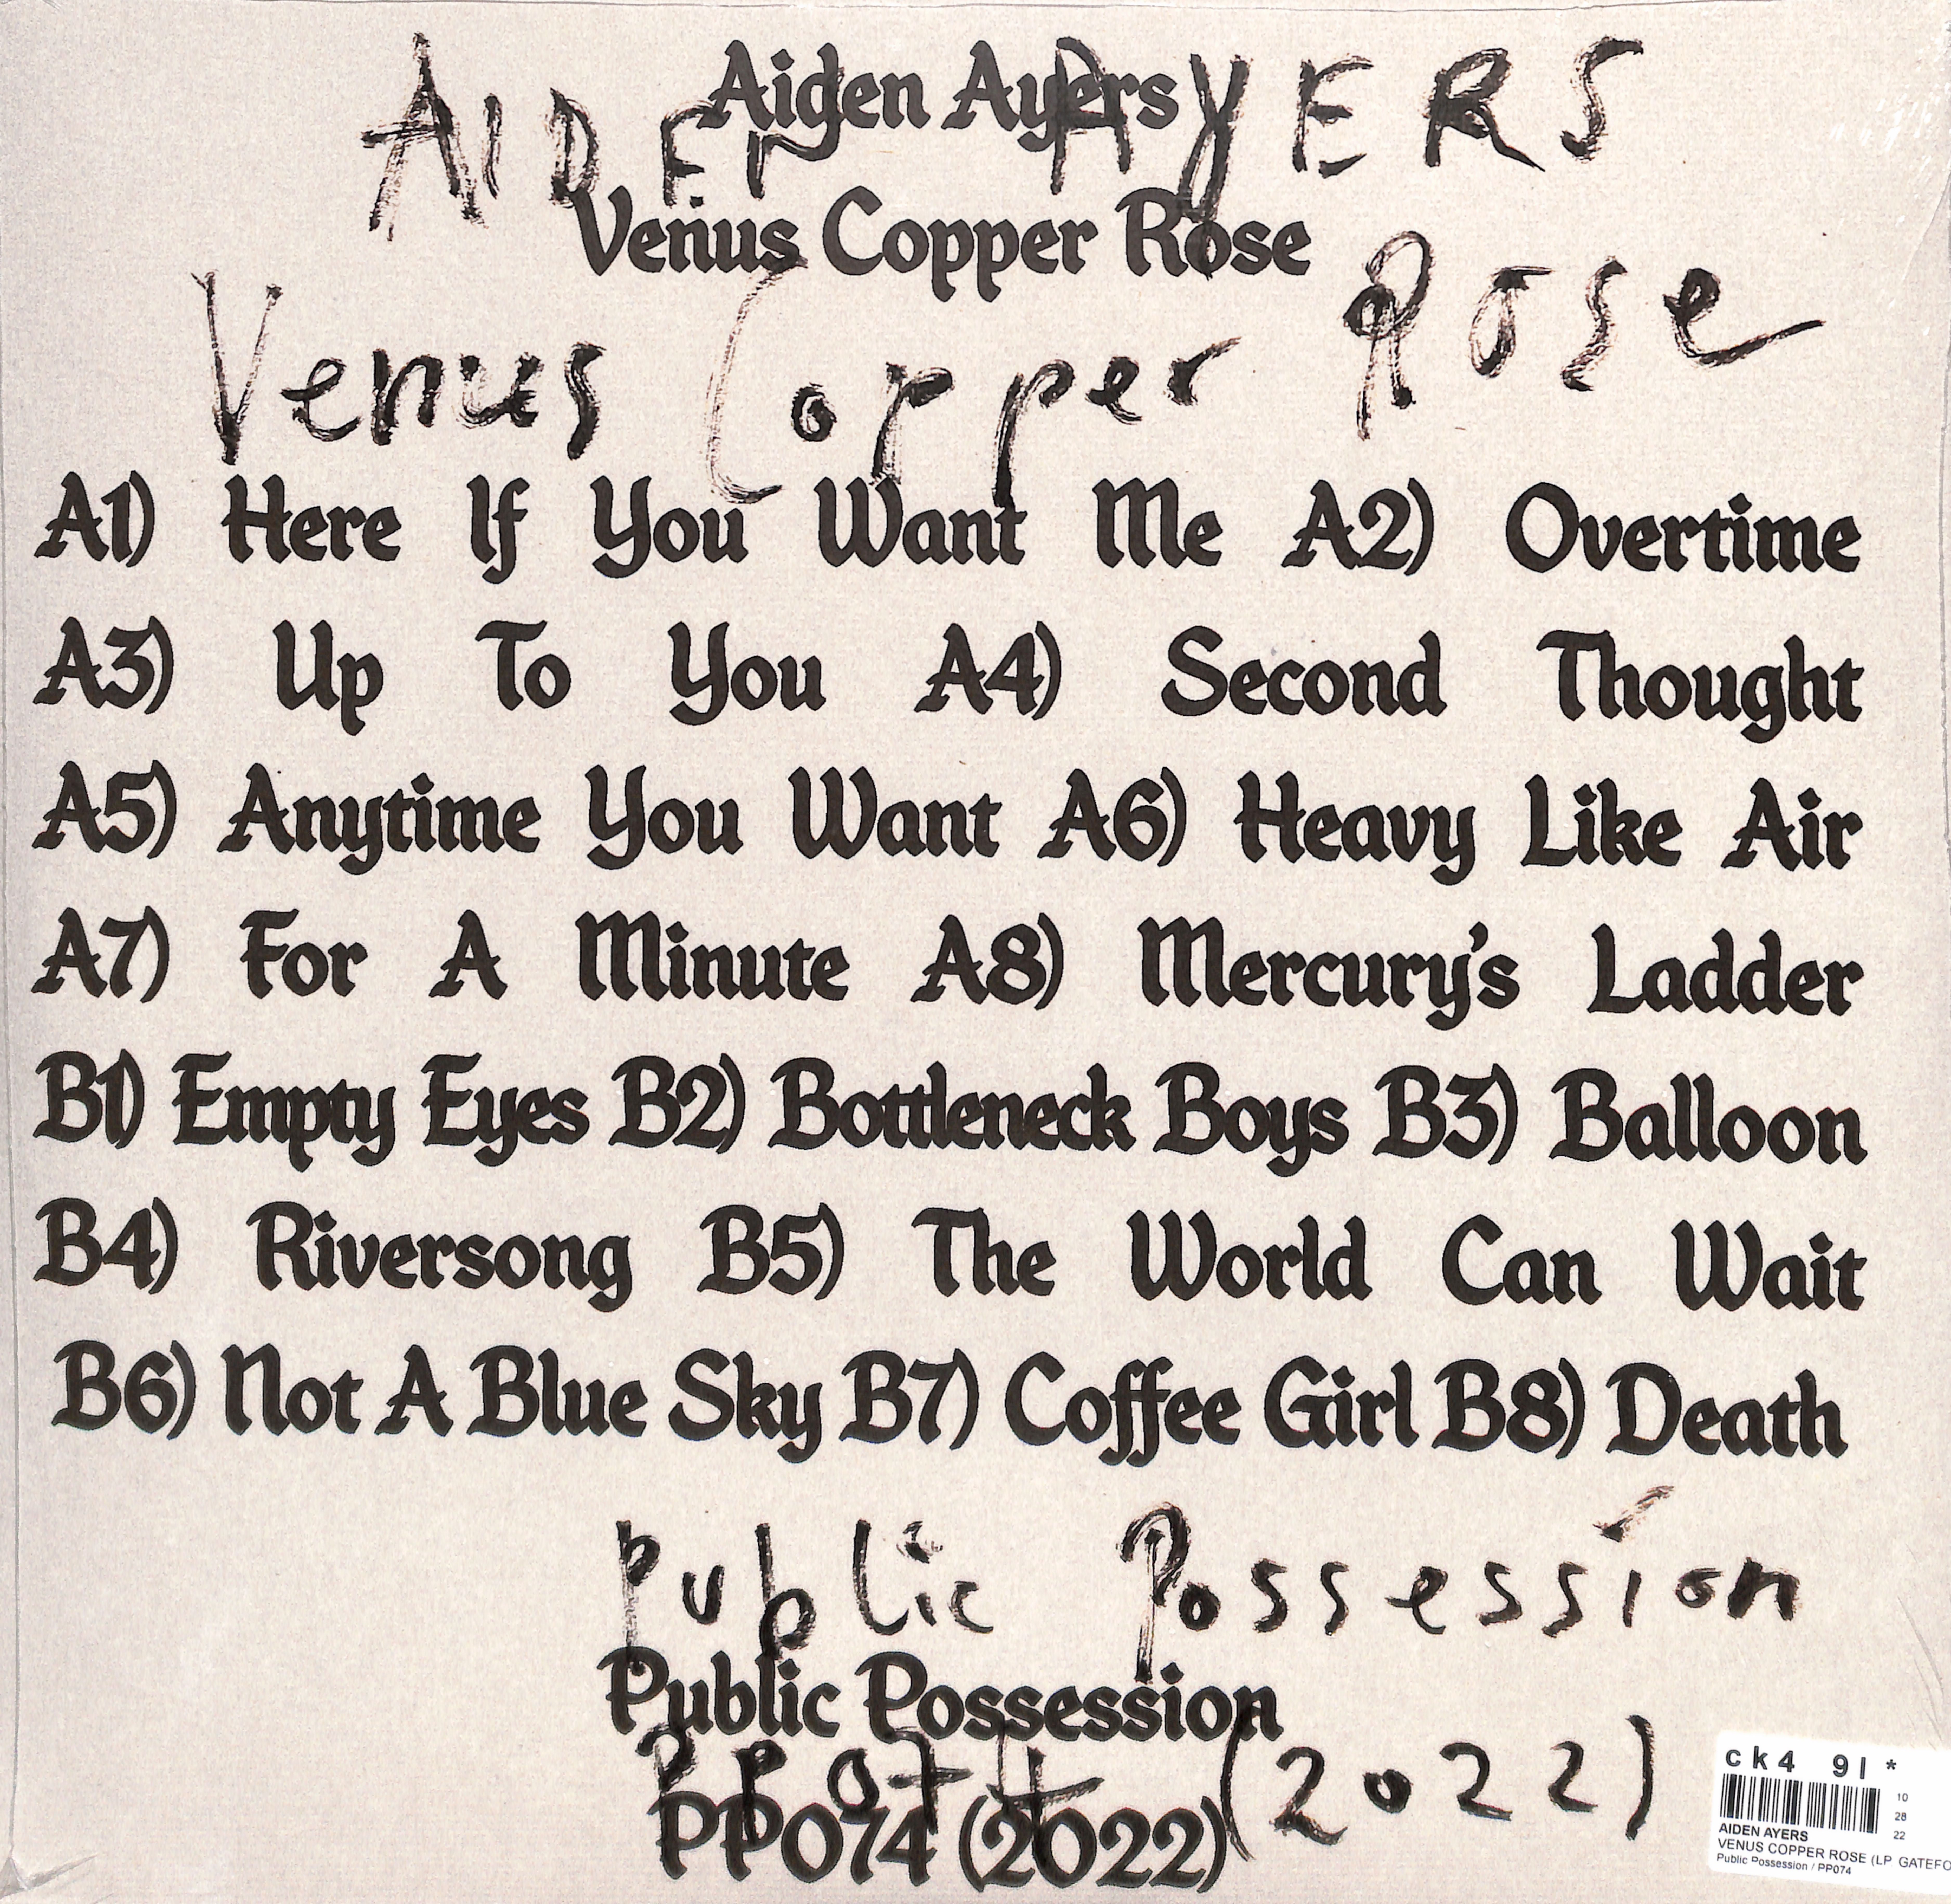 Aiden Ayers
AIDEN AYERS
Venus Copper Rose
Venus Copper Rose
A1) Here If You Want Me A2) Overtime
A3) Up To You A4) Second Thought
A5) Anytime You Want A6) Heavy Like Air
A7) For A Minute A8) Mercury's Ladder
B1) Empty Eyes B2) Bottleneck Boys B3) Balloon
B4) Riversong B5) The World Can Wait
B6) Not A Blue Sky B7) Coffee Girl B8) Death
Public Possession
Public Possession
PP074 (2022)
PP074 (2022)
ck4 9l *
10
28
22
AIDEN AYERS
VENUS COPPER ROSE (LP GATEFO
Public Possession / PP074